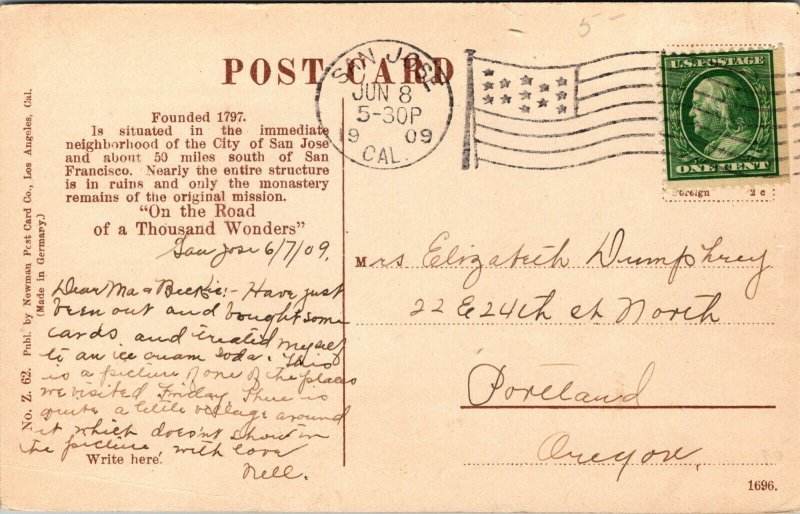 5-
POST CARD
SAN JOSE
JUN 8
5-30P
1909
CAL.
U.S. POSTAGE
ONE CENT
Foreign 2c
Founded 1797.
Is situated in the immediate
neighborhood of the City of San Jose
and about 50 miles south of San
Francisco. Nearly the entire structure
is in ruins and only the monastery
remains of the original mission.
"On the Road
of a Thousand Wonders"
San Jose 6/7/09.
Dear Ma & Beckie:- Have just
been out and bought some
cards and treated myself
to an ice cream soda. This
is a picture of one of the places
we visited Friday. There is
quite a little village around
it which doesn't show in
the picture, with love
Nell.
Write here.
Mrs Elizabeth Dumphrey
22 E 24th st North
Portland
Oregon.
1696.
No. Z. 62. Publ. by Newman Post Card Co., Los Angeles, Cal.
(Made in Germany.)